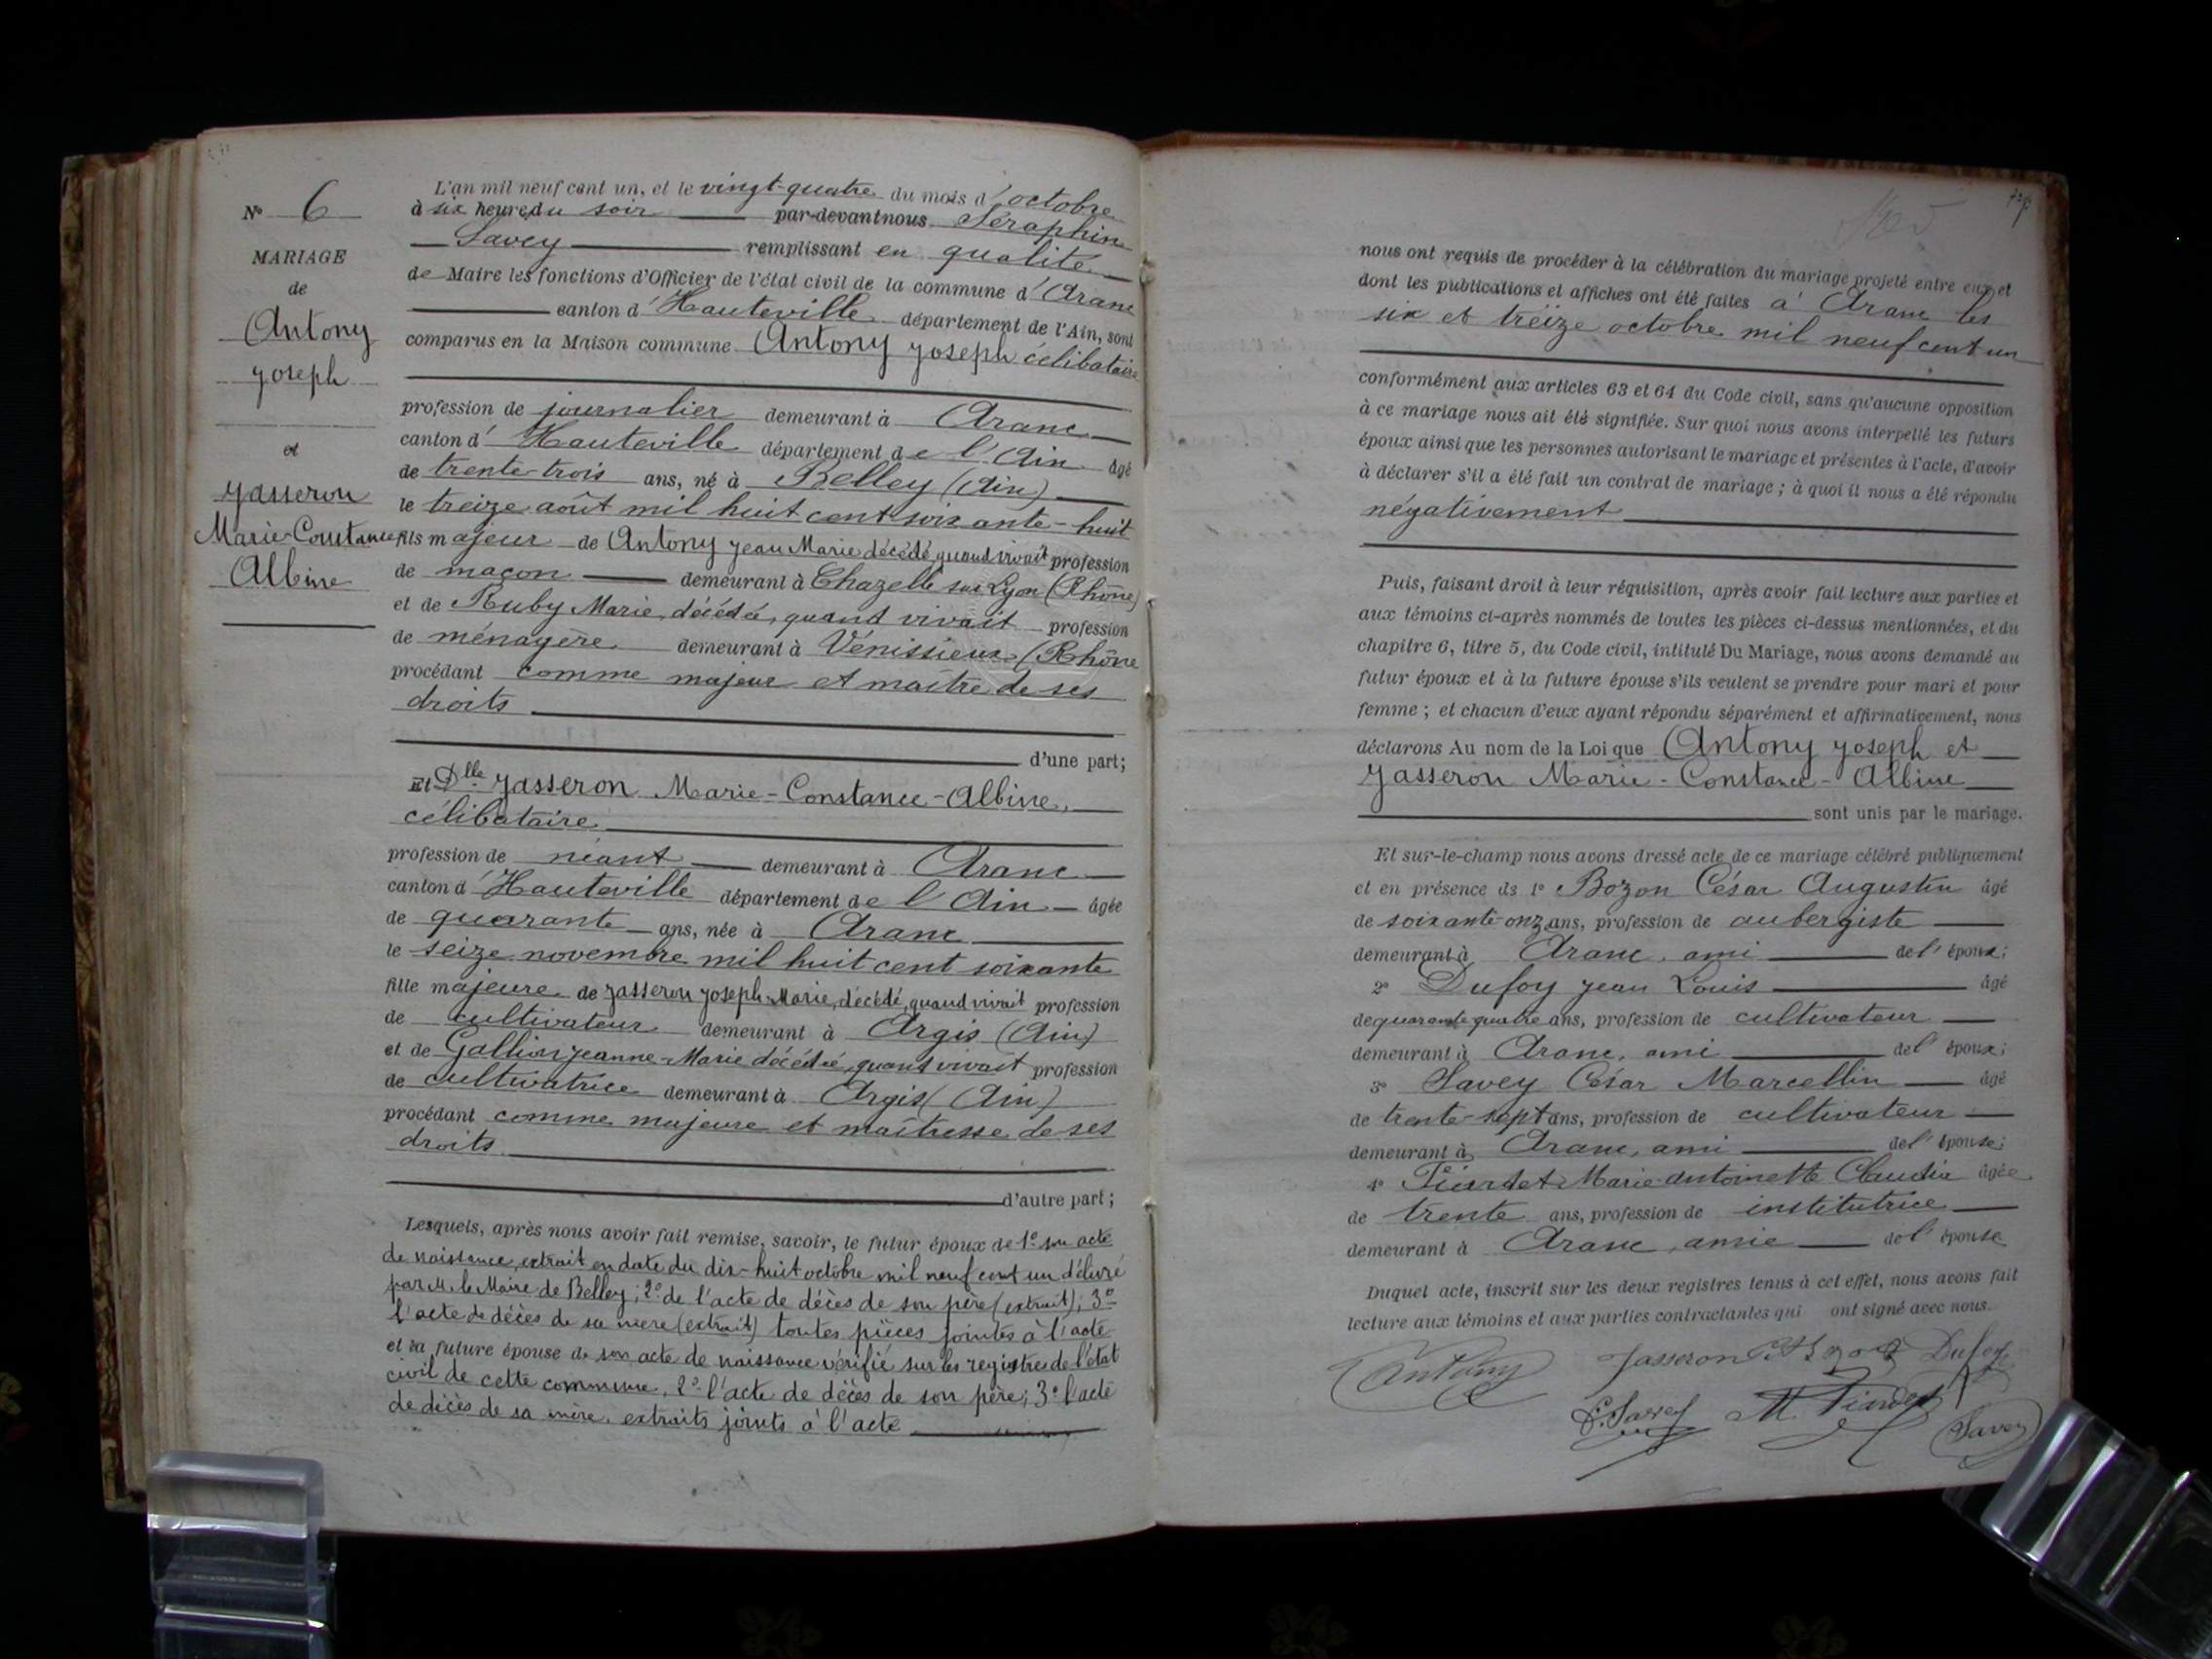 N° 6
MARIAGE
de
Antony
Joseph
et
Jasseron
Marie-Constance
Albine
L'an mil neuf cent un, et le vingt-quatre du mois d'octobre
à six heures du soir par-devant nous Séraphin
Savey remplissant en qualité
de Maire les fonctions d'Officier de l'état civil de la commune d'Aranc
canton d'Hauteville département de l'Ain, sont
comparus en la Maison commune Antony Joseph célibataire
profession de journalier demeurant à Aranc
canton d'Hauteville département de l'Ain âgé
de trente-trois ans, né à Belley (Ain)
le treize août mil huit cent soixante-huit
fils majeur de Antony Jean Marie décédé, quand vivait profession
de maçon demeurant à Chazelle sur Lyon (Rhône)
et de Ruby Marie, décédée, quand vivait profession
de ménagère demeurant à Vénissieux (Rhône
procédant comme majeur et maître de ses
droits
d'une part;
Et Dlle Jasseron Marie-Constance-Albine,
célibataire
profession de néant demeurant à Aranc
canton d'Hauteville département de l'Ain âgée
de quarante ans, née à Aranc
le seize novembre mil huit cent soixante
fille majeure de Jasseron Joseph-Marie, décédé, quand vivait profession
de cultivateur demeurant à Argis (Ain)
et de Gallion Jeanne-Marie décédée, quand vivait profession
de cultivatrice demeurant à Argis (Ain)
procédant comme majeure et maîtresse de ses
droits.
d'autre part;
Lesquels, après nous avoir fait remise, savoir, le futur époux de 1° son acte
de naissance, extrait en date du dix-huit octobre mil neuf cent un délivré
par M. le Maire de Belley; 2° de l'acte de décès de son père (extrait); 3°
l'acte de décès de sa mère (extrait) toutes pièces jointes à l'acte
et la future épouse de son acte de naissance vérifié sur les registres de l'état
civil de cette commune, 2° l'acte de décès de son père; 3° l'acte
de décès de sa mère, extraits joints à l'acte
nous ont requis de procéder à la célébration du mariage projeté entre eux et
dont les publications et affiches ont été faites à Aranc les
six et treize octobre mil neuf cent un
conformément aux articles 63 et 64 du Code civil, sans qu'aucune opposition
à ce mariage nous ait été signifiée. Sur quoi nous avons interpellé les futurs
époux ainsi que les personnes autorisant le mariage et présentes à l'acte, d'avoir
à déclarer s'il a été fait un contrat de mariage; à quoi il nous a été répondu
négativement
Puis, faisant droit à leur réquisition, après avoir fait lecture aux parties et
aux témoins ci-après nommés de toutes les pièces ci-dessus mentionnées, et du
chapitre 6, titre 5, du Code civil, intitulé Du Mariage, nous avons demandé au
futur époux et à la future épouse s'ils veulent se prendre pour mari et pour
femme; et chacun d'eux ayant répondu séparément et affirmativement, nous
déclarons Au nom de la Loi que Antony Joseph et
Jasseron Marie-Constance-Albine
sont unis par le mariage.
Et sur-le-champ nous avons dressé acte de ce mariage célébré publiquement
et en présence de 1° Bozon César Augustin âgé
de soixante-onz ans, profession de aubergiste
demeurant à Aranc, ami de l'époux;
2° Dufoy Jean Louis âgé
de quarante quatre ans, profession de cultivateur
demeurant à Aranc, ami de l'époux;
3° Savey César Marcellin âgé
de trente-sept ans, profession de cultivateur
demeurant à Aranc, ami de l'épouse;
4° Marie-Antoinette Claudia âgée
de trente ans, profession de institutrice
demeurant à Aranc, amie de l'épouse
Duquel acte, inscrit sur les deux registres tenus à cet effet, nous avons fait
lecture aux témoins et aux parties contractantes qui ont signé avec nous.
Antony Jasseron Dufoy
C. Savey M. Savey